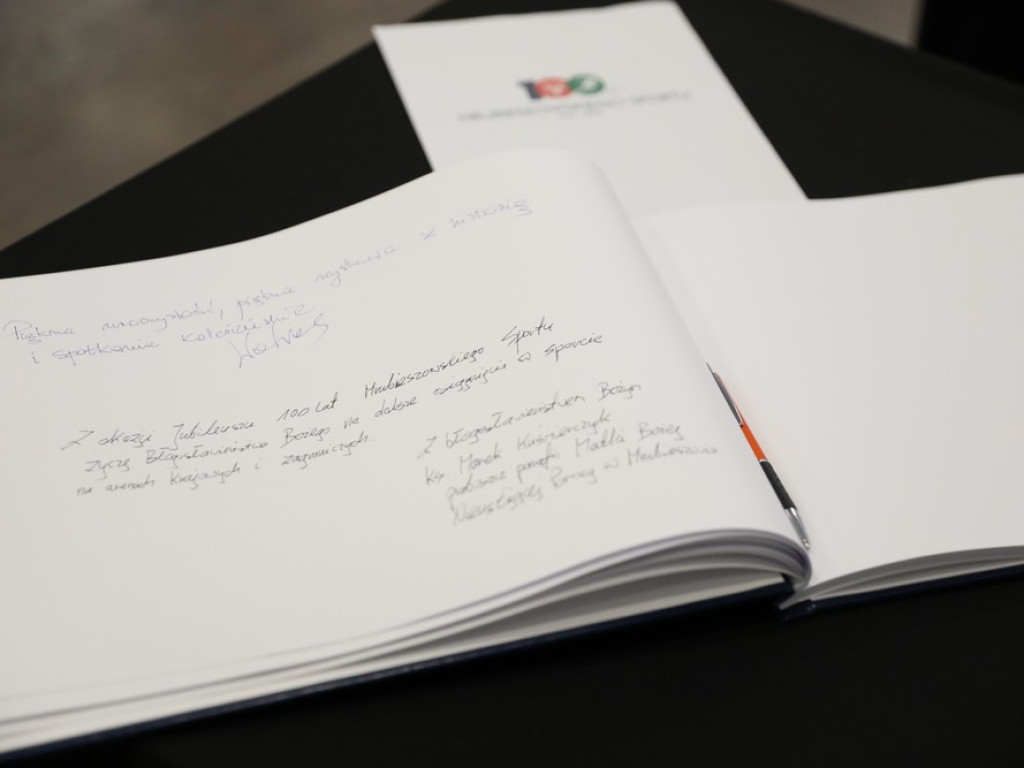 100
HRUBIESZOWSKIEGO SPORTU
Piękna uroczystość, piękna wystawa z historią
i spotkanie koleżeńskie
Z okazji Jubileuszu 100 Lat Hrubieszowskiego Sportu
życzę Błogosławieństwa Bożego na dalsze osiągnięcia w sporcie
na arenach krajowych i zagranicznych
Z błogosławieństwem Bożym
Ks. Marek Kuśnierczyk
proboszcz parafii Matki Bożej
Nieustającej Pomocy w Hrubieszowie